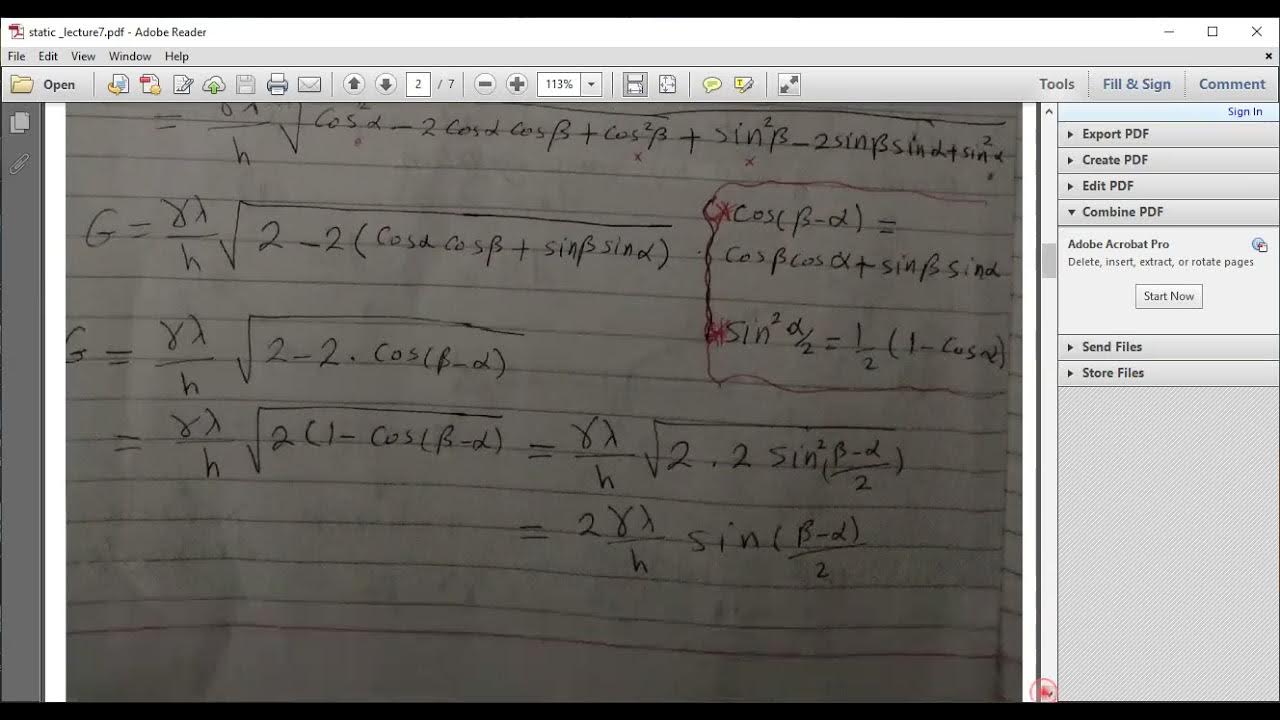 static _lecture7.pdf - Adobe Reader
File Edit View Window Help
Open 2 / 7 113% Tools Fill & Sign Comment
Sign In
Export PDF
Create PDF
Edit PDF
Combine PDF
Adobe Acrobat Pro
Delete, insert, extract, or rotate pages
Start Now
Send Files
Store Files
= γλ/h √(cos²α - 2 cosα cosβ + cos²β + sin²β - 2 sinβ sinα + sin²α
G = γλ/h √(2 - 2 (cosα cosβ + sinβ sinα)
* cos(β-α) =
cosβ cosα + sinβ sinα
* sin² α/2 = 1/2 (1 - cosα)
G = γλ/h √(2 - 2 . cos(β-α)
= γλ/h √(2 (1 - cos(β-α) = γλ/h √(2 . 2 sin²(β-α/2)
= 2γλ/h sin(β-α)/2